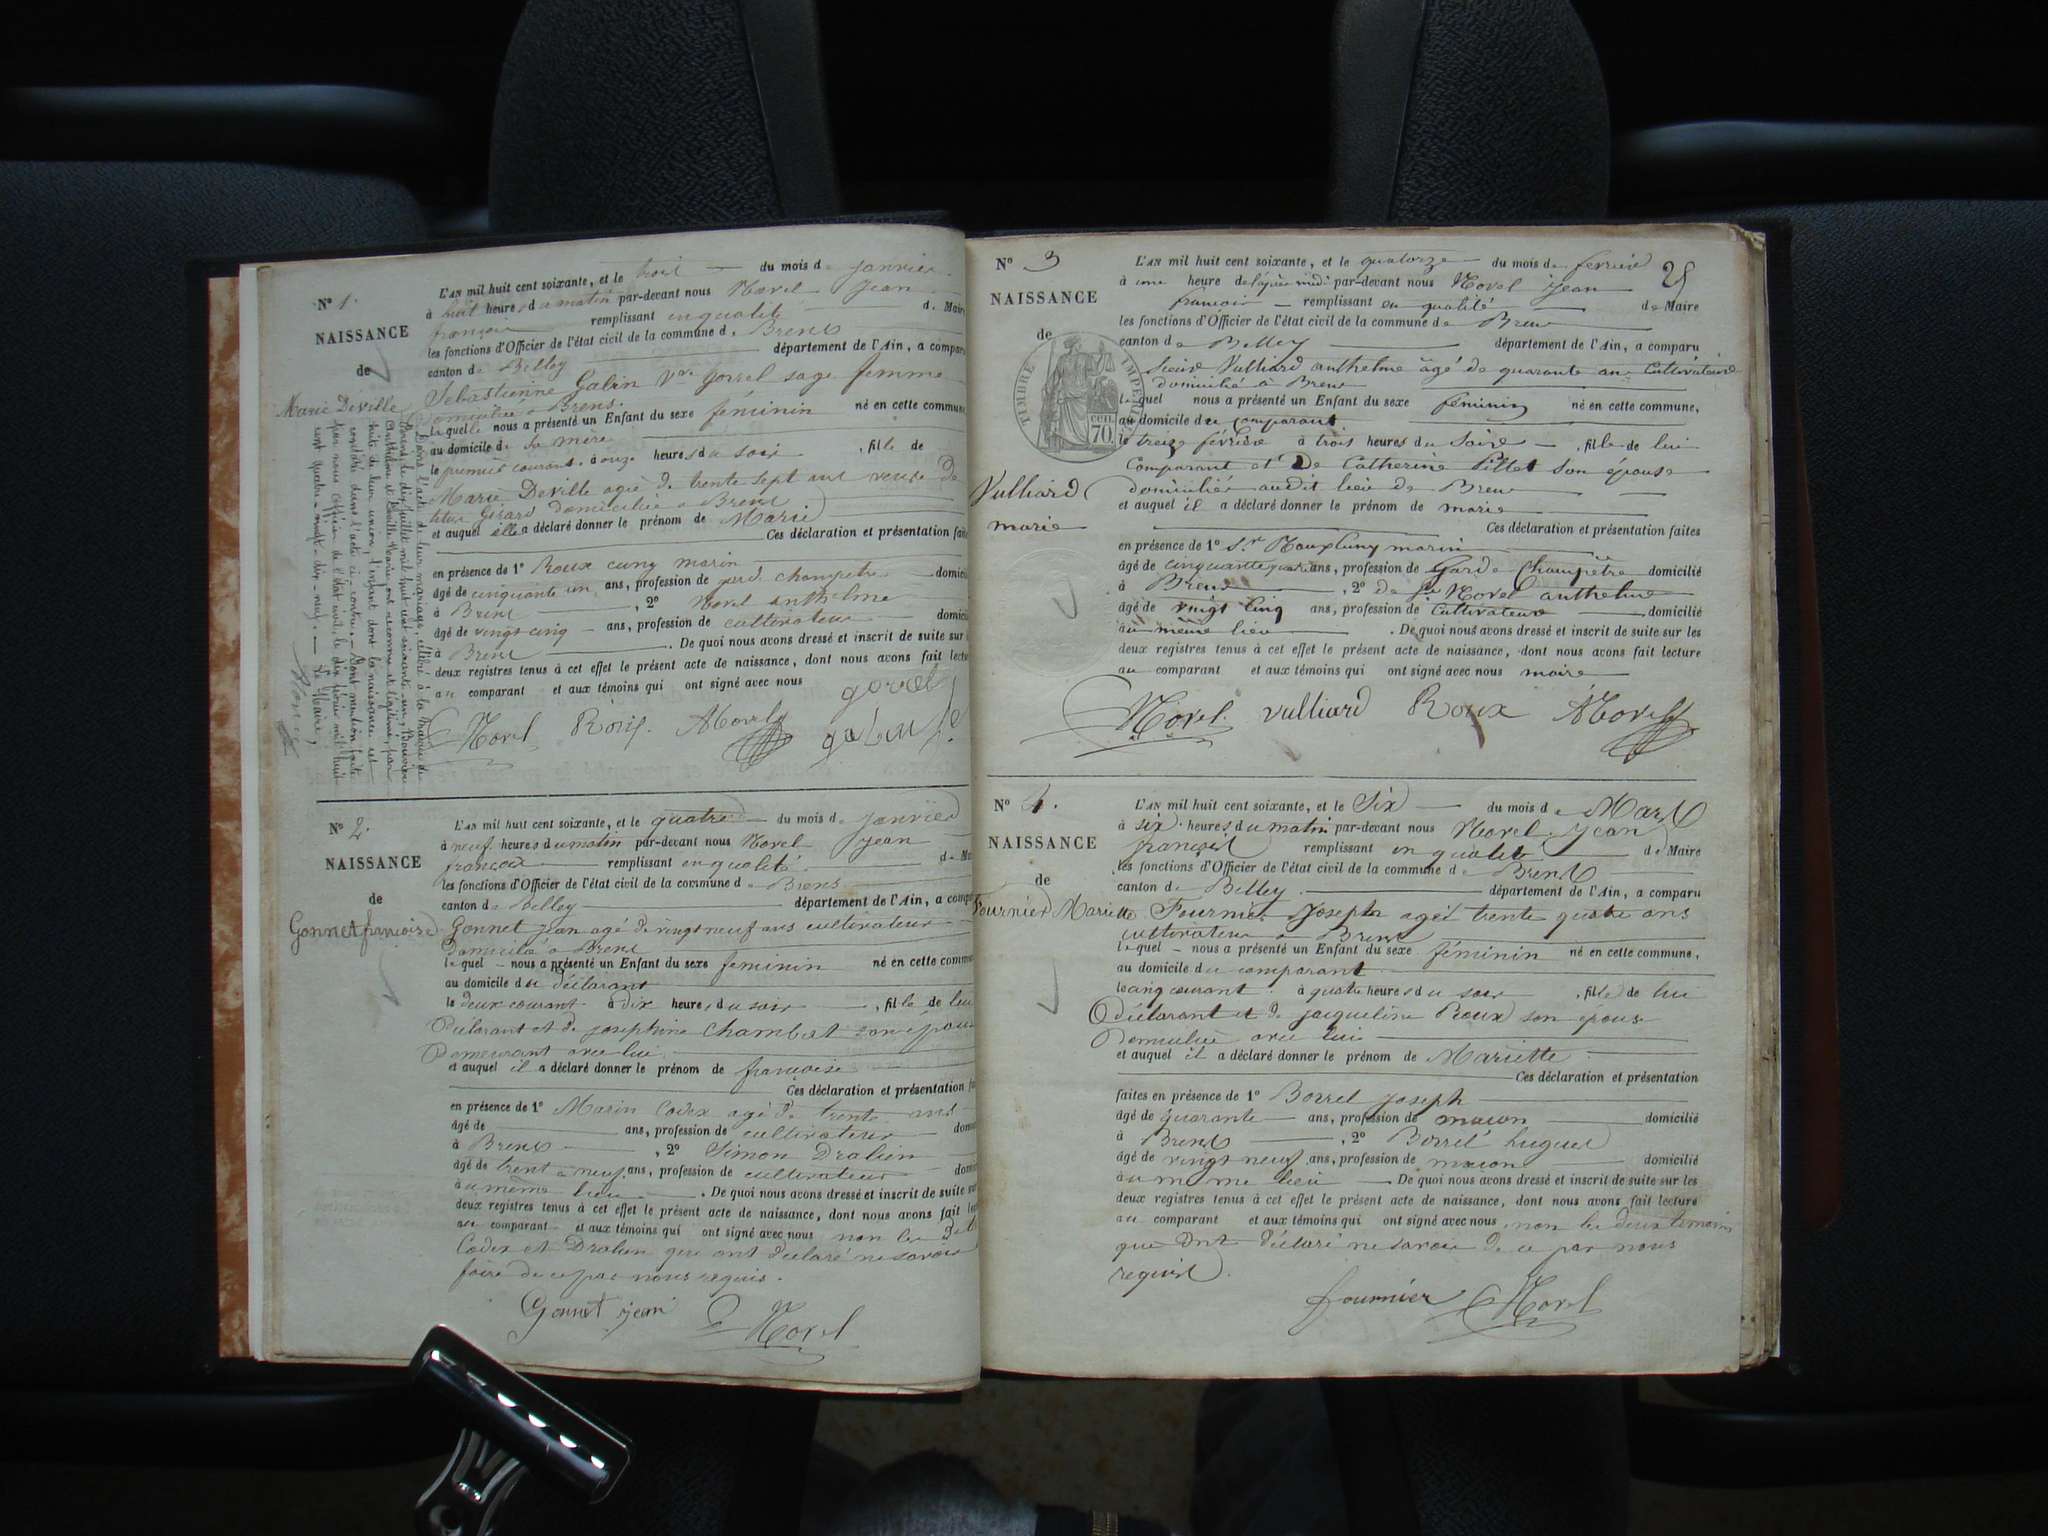 N° 1.
NAISSANCE
de
Marie Deville
L'AN mil huit cent soixante, et le trois du mois de janvier
à huit heures du matin par-devant nous Morel Jean
françois remplissant en qualité de Maire
les fonctions d'Officier de l'état civil de la commune de Brens
canton de Belley département de l'Ain, a comparu
Sebastienne Galin Vve sage femme
domiciliée à Brens.
laquelle nous a présenté un Enfant du sexe féminin né en cette commune,
au domicile de sa mère
le premier courant à onze heures du soir , fille de
Marie Deville agée de trente sept ans veuve de
Girard domiciliée à Brens
et auquel elle a déclaré donner le prénom de Marie
Ces déclaration et présentation faites
en présence de 1° Roux cuny marin
âgé de cinquante un ans, profession de gard champetre domicilié
à Brens , 2° Morel anthelme
âgé de vingt cinq ans, profession de cultivateur domicilié
à Brens . De quoi nous avons dressé et inscrit de suite sur
deux registres tenus à cet effet le présent acte de naissance, dont nous avons fait lecture
au comparant et aux témoins qui ont signé avec nous
Morel Roux AMorel
Dans l'acte de leur mariage, célébré à la Mairie de
Brens, le dix juillet mil huit cent soixante un,
Anthelme et Deville Marie ont reconnu et légitimé, par
suite de leur union, l'enfant dont la naissance est
constatée dans l'acte ci-contre. Dont mention faite
par nous officier de l'état civil, le dix février mil huit
cent quatre-vingt-dix-neuf. Le Maire,
N° 2.
NAISSANCE
de
Gonnet françoise
L'AN mil huit cent soixante, et le quatre du mois de janvier
à neuf heures du matin par-devant nous Morel Jean
françois remplissant en qualité de Maire
les fonctions d'Officier de l'état civil de la commune de Brens
canton de Belley département de l'Ain, a comparu
Gonnet jean agé de vingt neuf ans cultivateur
domicilié à Brens
lequel nous a présenté un Enfant du sexe feminin né en cette commune
au domicile du déclarant
le deux courant à dix heures du soir , fille de lui
déclarant et de josephine Chambat son épouse
Demeurant avec lui
et auquel il a déclaré donner le prénom de françoise
Ces déclaration et présentation
en présence de 1° Marin Codex agé de trente ans
âgé de ans, profession de cultivateur
à Brens , 2° Simon Dralien
âgé de trente neuf ans, profession de cultivateur
au même lieu . De quoi nous avons dressé et inscrit de suite sur
deux registres tenus à cet effet le présent acte de naissance, dont nous avons fait
au comparant et aux témoins qui ont signé avec nous non les dits
Codex et Dralien qui ont déclaré ne savoir
faire de ce par nous requis.
Gonnet jean Morel
25
N° 3
NAISSANCE
de
TIMBRE IMPERIAL
70 cen.
Vulliard
marie
L'AN mil huit cent soixante, et le quatorze du mois de fevrier
à une heure de l'après midi par-devant nous Morel jean
françois remplissant en qualité de Maire
les fonctions d'Officier de l'état civil de la commune de Brens
canton de Belley département de l'Ain, a comparu
Sieur Vulliard anthelme âgé de quarante ans Cultivateur
domicilié à Brens
lequel nous a présenté un Enfant du sexe féminin né en cette commune,
au domicile du comparant
le treize février à trois heures du Soire , fille de lui
Comparant et De Catherine Pillet son épouse
domiciliée audit lieu de Brens
et auquel il a déclaré donner le prénom de marie
Ces déclaration et présentation faites
en présence de 1° Sr Roux marin
âgé de cinquante ans, profession de Garde Champêtre domicilié
à Brens , 2° de Sr Morel anthelme
âgé de vingt cinq ans, profession de Cultivateur domicilié
au même lieu . De quoi nous avons dressé et inscrit de suite sur les
deux registres tenus à cet effet le présent acte de naissance, dont nous avons fait lecture
au comparant et aux témoins qui ont signé avec nous maire
Morel. vulliard Roux AMorel
N° 4.
NAISSANCE
de
Fournier Mariette
L'AN mil huit cent soixante, et le Six du mois de Mars
à six heures du matin par-devant nous Morel Jean
françois remplissant en qualité de Maire
les fonctions d'Officier de l'état civil de la commune de Brens
canton de Belley département de l'Ain, a comparu
Fournier Joseph agé trente quatre ans
cultivateur à Brens
lequel nous a présenté un Enfant du sexe féminin né en cette commune,
au domicile du comparant
le cinq courant à quatre heures du soir , fille de lui
Déclarant et de jacqueline Roux son épouse
Domiciliée avec lui
et auquel il a déclaré donner le prénom de Mariette
Ces déclaration et présentation
faites en présence de 1° Borrel Joseph
âgé de quarante ans, profession de maçon domicilié
à Brens , 2° Borrel hugues
âgé de vingt neuf ans, profession de maçon domicilié
au même lieu . De quoi nous avons dressé et inscrit de suite sur les
deux registres tenus à cet effet le présent acte de naissance, dont nous avons fait lecture
au comparant et aux témoins qui ont signé avec nous non les deux temoins
que ont déclaré ne savoir de ce par nous
requis.
fournier Morel